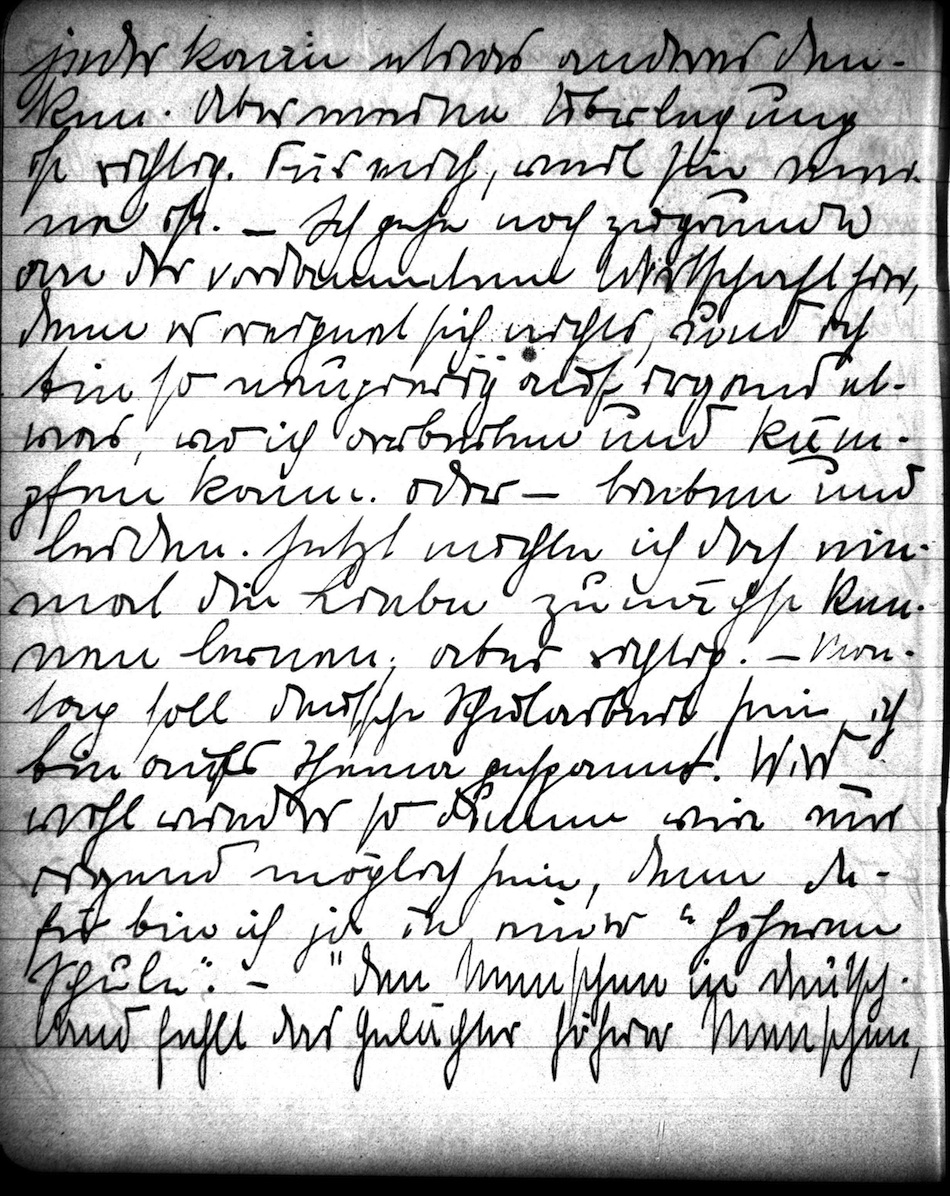 jeder kann etwas anderes den-
ken. Aber meine Überlegung
ist richtig. Für mich, weil sie mei-
ne ist. – Ich gehe noch zugrunde
an der verdammten Wirtschaft hier,
denn es ereignet sich nichts, und ich
bin so neugierig auf irgend et-
was, wo ich arbeiten und käm-
pfen kann. Oder – lieben und
leiden. Jetzt möchte ich doch ein-
mal die Liebe zunächst ken-
nen lernen, aber richtig. – Mon-
tag soll deutsche Schularbeit sein, ich
bin aufs Thema gespannt. Wird
wohl wieder so dumm wie nur
irgend möglich sein, denn da-
für bin ich ja in einer "höheren
Schule". – "Den Menschen in Deutsch-
land fehlt das Gelächter höherer Menschen,